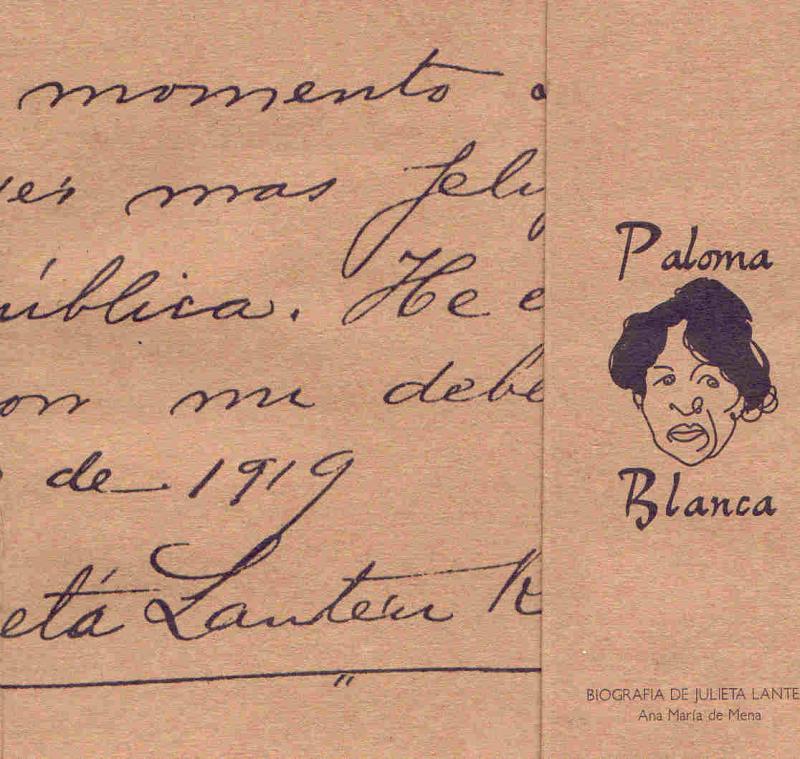 momento
mas feli
ública. He e
on mi debe
de 1919
eta Lanteri R
Paloma
Blanca
BIOGRAFIA DE JULIETA LANTE
Ana María de Mena